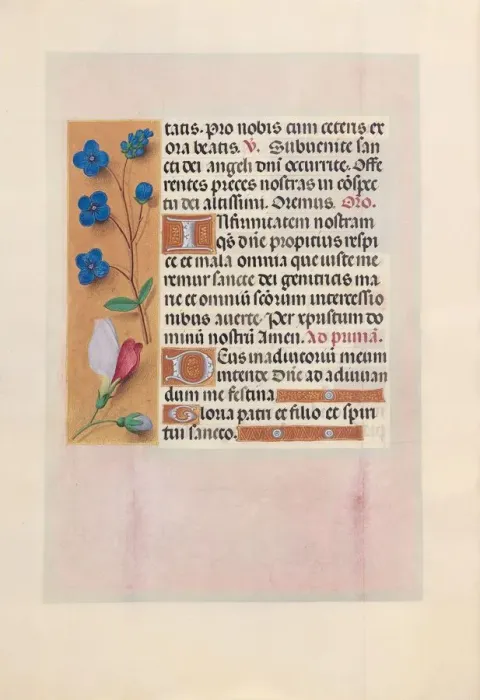 tatis. Pro nobis cum ceteris ex
ora beatis. V. Subvenite san
cti dei angeli dnī occurrite. Offe
rentes preces nostras in cōspec
tu dei altissimi. Oremus. Oro.
Infirmitatem nostram
qs̄ dn̄e propitius respi
ce et mala omnia que iuste me
remur sancte dei genitricis ma
rie et omniū scōrum intercessio
nibus averte. Per xpustum do
minū nostrū Amen. Ad primā.
Deus in adiutoriū meum
intende Dn̄e ad adiuvan
dum me festina.
Gloria patri et filio et spiri
tui sancto.